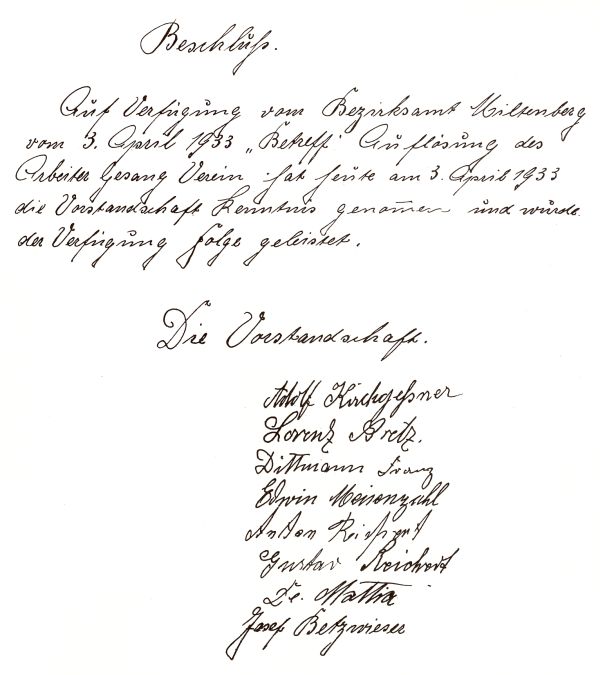 Beschluß.
Auf Verfügung vom Bezirksamt Miltenberg
vom 3. April 1933 „Betreff" Auflösung des
Arbeiter Gesang Verein hat heute am 3. April 1933
die Vorstandschaft Kenntnis genom̄en und wurde
der Verfügung folge geleistet.
Die Vorstandschaft.
Adolf Kirchgeßner
Lorenz Bretz.
Dittmann Franz
Edwin Meisenzahl
Anton Reichert
Gustav Reichert
De. Mattia
Josef Betzwieser